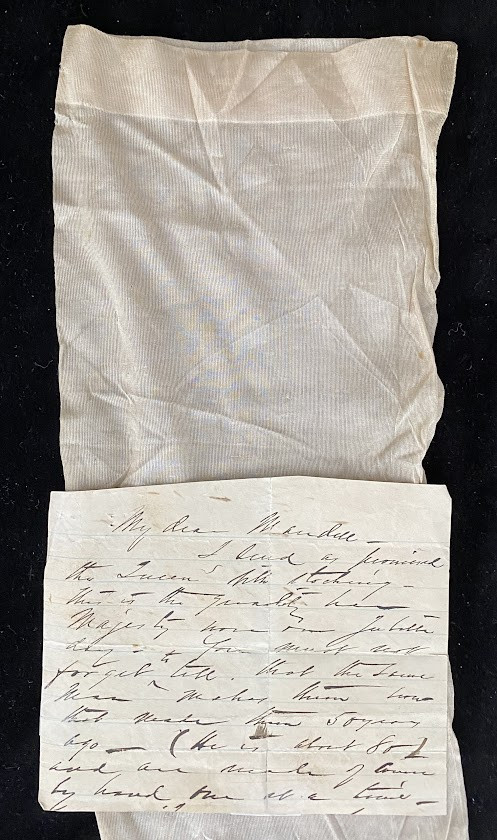 My dear Mr
I send as promised
the Queen's silk stocking -
this is the quality her
Majesty wore on Jubilee
day - You must not
forget to tell. that the same
Man makes them now
that made them 50 years
ago - (He is about 80)
and are made of course
by hand, one at a time -